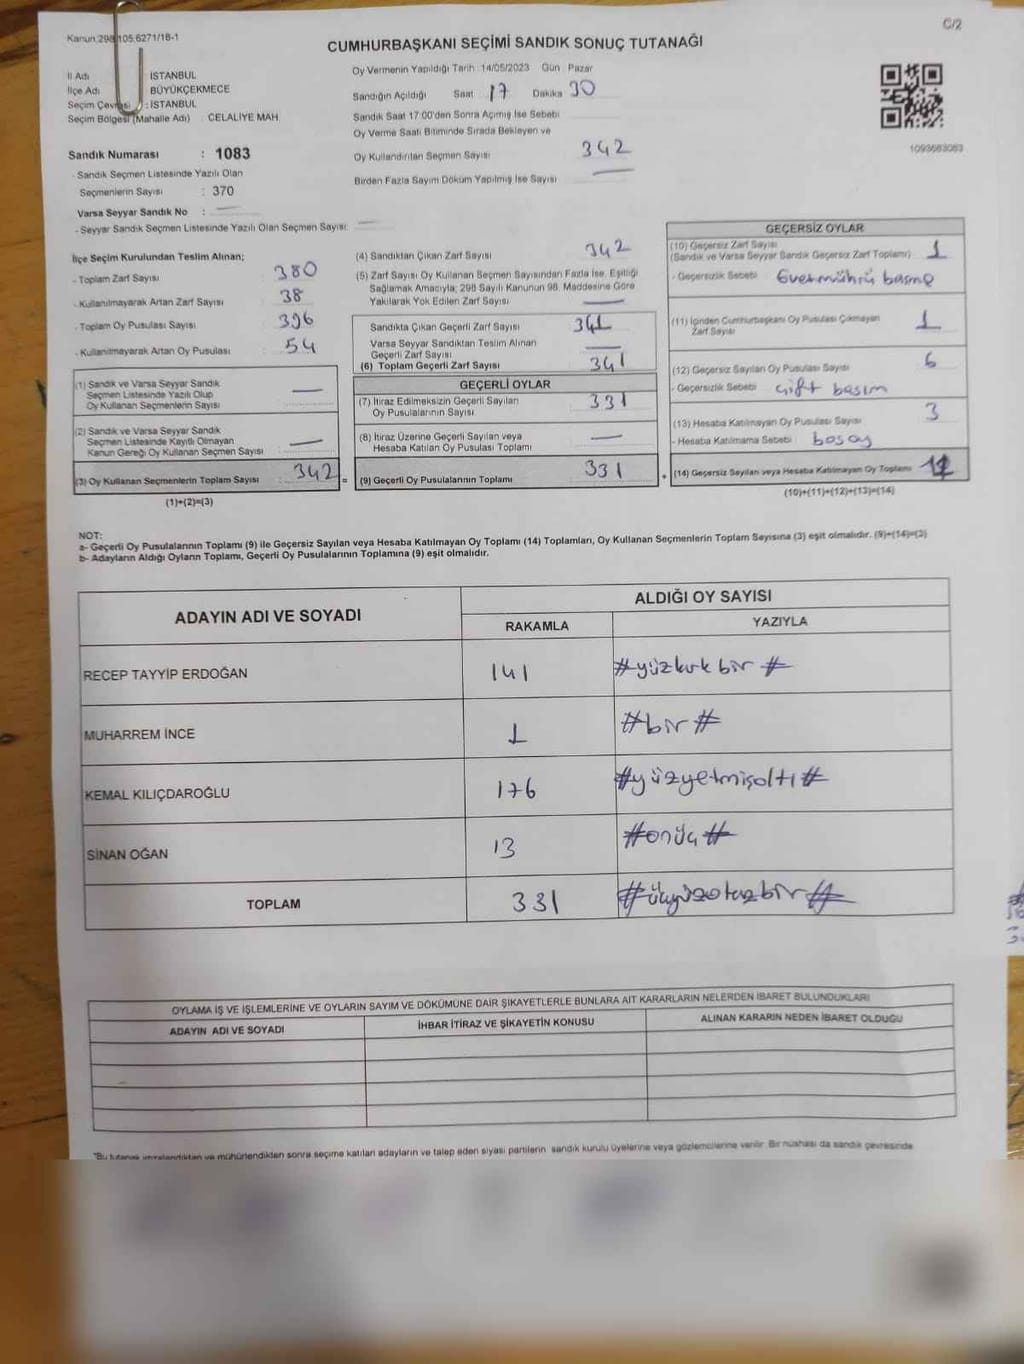 C/2
Kanun:298,105:6271/18-1
CUMHURBAŞKANI SEÇİMİ SANDIK SONUÇ TUTANAĞI
İl Adı : İSTANBUL
İlçe Adı : BÜYÜKÇEKMECE
Seçim Çevresi : İSTANBUL
Seçim Bölgesi (Mahalle Adı) : CELALİYE MAH.
Sandık Numarası : 1083
- Sandık Seçmen Listesinde Yazılı Olan
Seçmenlerin Sayısı : 370
Varsa Seyyar Sandık No : —
- Seyyar Sandık Seçmen Listesinde Yazılı Olan Seçmen Sayısı: —
Oy Vermenin Yapıldığı Tarih :14/05/2023 Gün : Pazar
Sandığın Açıldığı Saat 17 Dakika 30
Sandık Saat 17:00'den Sonra Açılmış İse Sebebi
Oy Verme Saati Bitiminde Sırada Bekleyen ve
Oy Kullandırılan Seçmen Sayısı 342
Birden Fazla Sayım Döküm Yapılmış İse Sayısı —
1093663083
İlçe Seçim Kurulundan Teslim Alınan;
- Toplam Zarf Sayısı 380
- Kullanılmayarak Artan Zarf Sayısı 38
- Toplam Oy Pusulası Sayısı 396
- Kullanılmayarak Artan Oy Pusulası 54
(1) Sandık ve Varsa Seyyar Sandık
Seçmen Listesinde Yazılı Olup
Oy Kullanan Seçmenlerin Sayısı —
(2) Sandık ve Varsa Seyyar Sandık
Seçmen Listesinde Kayıtlı Olmayan
Kanun Gereği Oy Kullanan Seçmen Sayısı —
(3) Oy Kullanan Seçmenlerin Toplam Sayısı 342 =
(1)+(2)=(3)
(4) Sandıktan Çıkan Zarf Sayısı 342
(5) Zarf Sayısı Oy Kullanan Seçmen Sayısından Fazla İse, Eşitliği
Sağlamak Amacıyla; 298 Sayılı Kanunun 98. Maddesine Göre
Yakılarak Yok Edilen Zarf Sayısı —
Sandıkta Çıkan Geçerli Zarf Sayısı 341
Varsa Seyyar Sandıktan Teslim Alınan
Geçerli Zarf Sayısı —
(6) Toplam Geçerli Zarf Sayısı 341
GEÇERLİ OYLAR
(7) İtiraz Edilmeksizin Geçerli Sayılan
Oy Pusulalarının Sayısı 331
(8) İtiraz Üzerine Geçerli Sayılan veya
Hesaba Katılan Oy Pusulası Toplamı —
(9) Geçerli Oy Pusulalarının Toplamı 331 +
GEÇERSİZ OYLAR
(10) Geçersiz Zarf Sayısı
(Sandık ve Varsa Seyyar Sandık Geçersiz Zarf Toplamı) 1
- Geçersizlik Sebebi Evetmührü basma
(11) İçinden Cumhurbaşkanı Oy Pusulası Çıkmayan
Zarf Sayısı 1
(12) Geçersiz Sayılan Oy Pusulası Sayısı 6
- Geçersizlik Sebebi çift basım
(13) Hesaba Katılmayan Oy Pusulası Sayısı 3
- Hesaba Katılmama Sebebi boş oy
(14) Geçersiz Sayılan veya Hesaba Katılmayan Oy Toplamı
(10)+(11)+(12)+(13)=(14)
NOT:
a- Geçerli Oy Pusulalarının Toplamı (9) ile Geçersiz Sayılan veya Hesaba Katılmayan Oy Toplamı (14) Toplamları, Oy Kullanan Seçmenlerin Toplam Sayısına (3) eşit olmalıdır. (9)+(14)=(3)
b- Adayların Aldığı Oyların Toplamı, Geçerli Oy Pusulalarının Toplamına (9) eşit olmalıdır.
ADAYIN ADI VE SOYADI ALDIĞI OY SAYISI
RAKAMLA YAZIYLA
RECEP TAYYİP ERDOĞAN 141 #yüzkırk bir #
MUHARREM İNCE 1 #bir#
KEMAL KILIÇDAROĞLU 176 #yüzyetmişaltı#
SİNAN OĞAN 13 #onüç#
TOPLAM 331 #üçyüzotuzbir#
OYLAMA İŞ VE İŞLEMLERİNE VE OYLARIN SAYIM VE DÖKÜMÜNE DAİR ŞİKAYETLERLE BUNLARA AİT KARARLARIN NELERDEN İBARET BULUNDUKLARI
ADAYIN ADI VE SOYADI İHBAR İTİRAZ VE ŞİKAYETİN KONUSU ALINAN KARARIN NEDEN İBARET OLDUĞU
*Bu tutanak imzalandıktan ve mühürlendikten sonra seçime katılan adayların ve talep eden siyasi partilerin sandık kurulu üyelerine veya gözlemcilerine verilir. Bir nüshası da sandık çevresinde